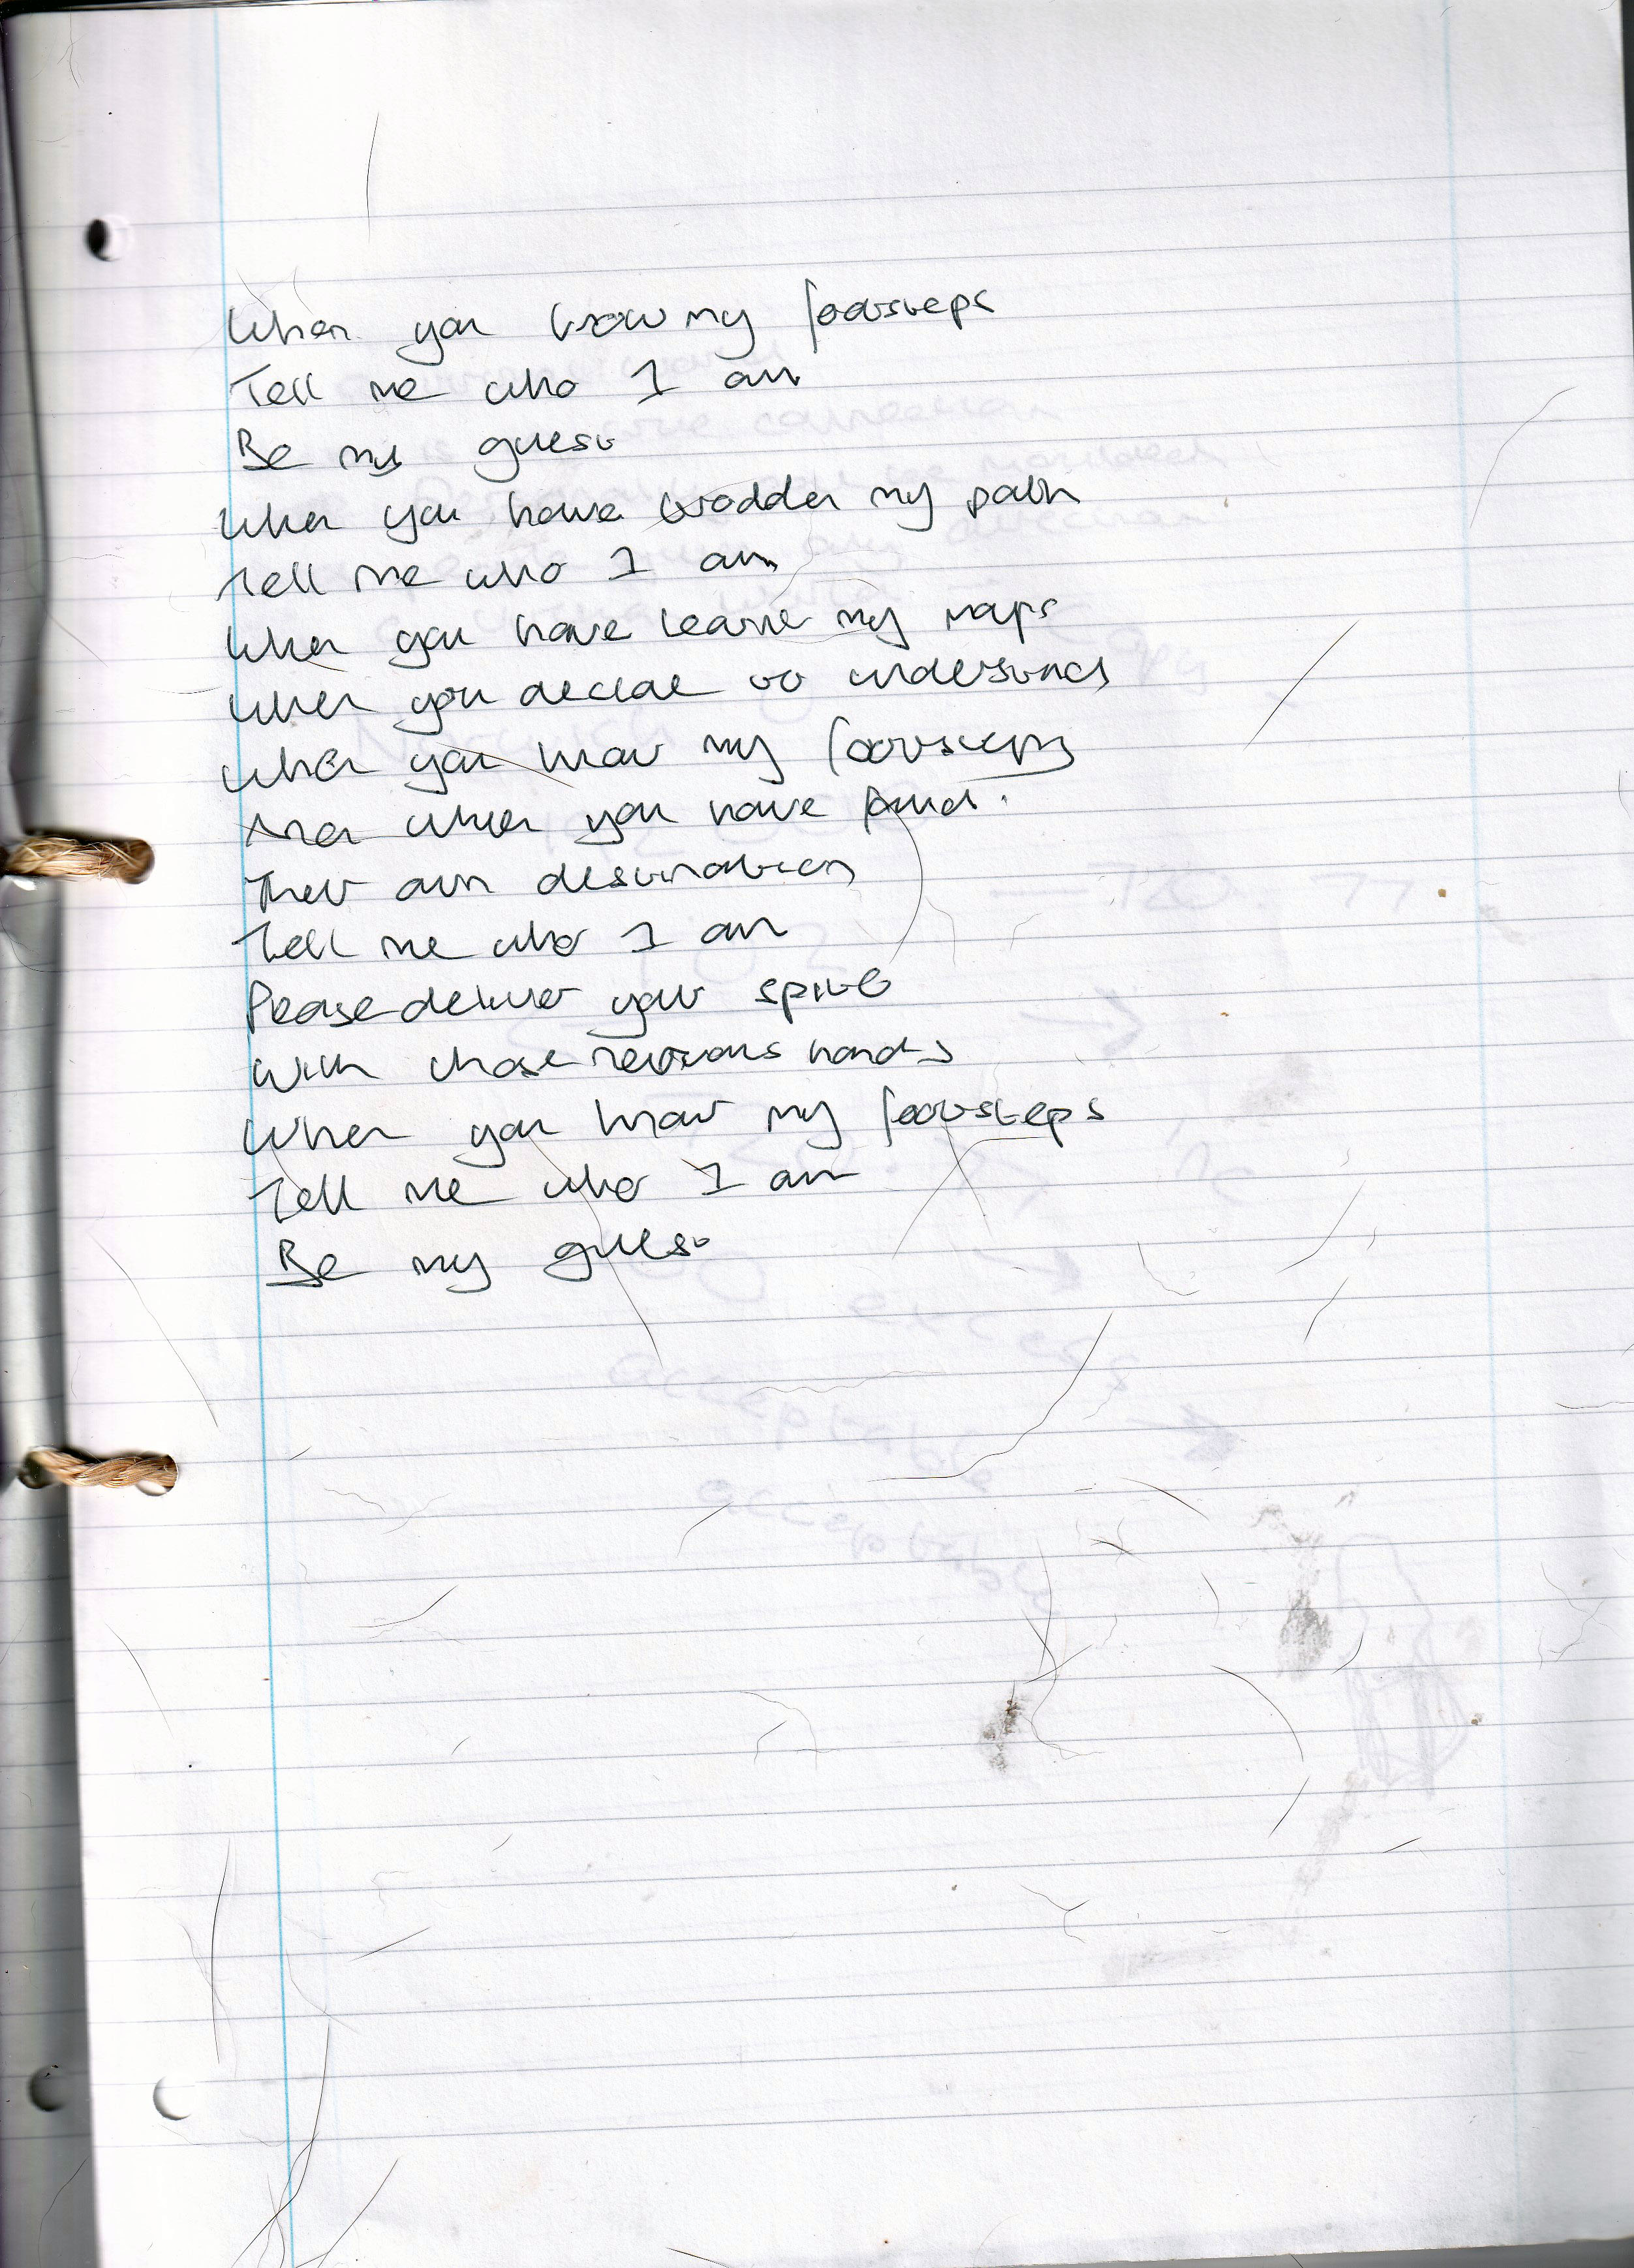 When you know my footsteps
Tell me who I am
Be my guest
When you have trodden my path
Tell me who I am
When you have learnt my maps
When you decide to understand
When you know my footsteps
And when you have found
Their own destination
Tell me who I am
Please deliver your spirit
With those nervous hands
When you know my footsteps
Tell me who I am
Be my guest
acceptable